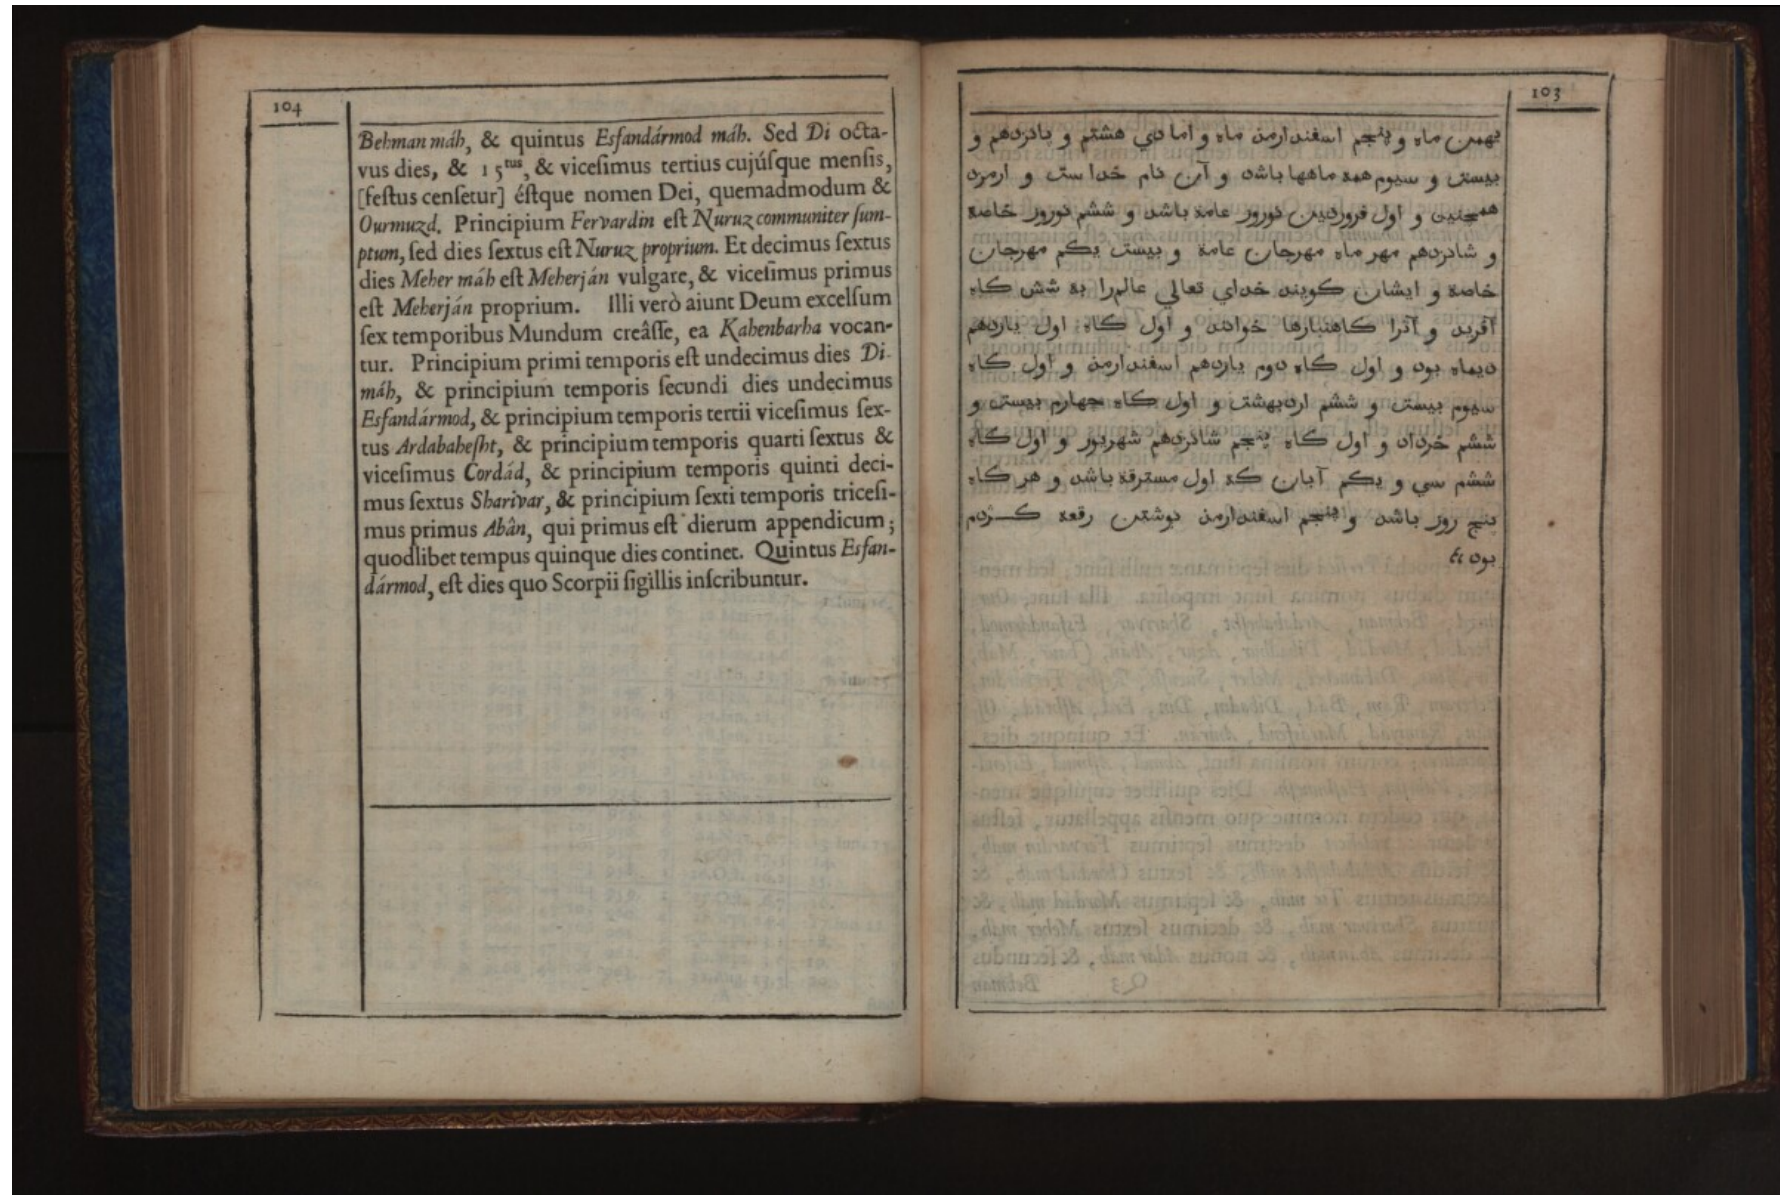 104
Behman máh, & quintus Esfandármod máh. Sed Di octa-
vus dies, & 15tus, & vicesimus tertius cujúsque mensis,
[festus censetur] éstque nomen Dei, quemadmodum &
Ourmuzd. Principium Fervardin est Nuruz communiter sum-
ptum, sed dies sextus est Nuruz proprium. Et decimus sextus
dies Meher máh est Meherján vulgare, & vicesimus primus
est Meherján proprium. Illi verò aiunt Deum excelsum
sex temporibus Mundum creâsse, ea Kahenbarha vocan-
tur. Principium primi temporis est undecimus dies Di-
máh, & principium temporis secundi dies undecimus
Esfandármod, & principium temporis tertii vicesimus sex-
tus Ardabahesht, & principium temporis quarti sextus &
vicesimus Cordád, & principium temporis quinti deci-
mus sextus Sharivar, & principium sexti temporis tricesi-
mus primus Abân, qui primus est dierum appendicum;
quodlibet tempus quinque dies continet. Quintus Esfan-
dármod, est dies quo Scorpii sigillis inscribuntur.
103
بهمن ماه و پنجم اسفندارمذ ماه و اما دي هشتم و پانزدهم و
بيست و سيوم همه ماهها باشد و آن نام خداست و ارمزد
همچنين و اول فروردين نوروز عامه باشد و ششم نوروز خاصه
و شانزدهم مهر ماه مهرجان عامة و بيست يكم مهرجان
خاصه و ايشان كويند خداي تعالي عالم‌را به شش كاه
آفريد و آنرا كاهنبارها خوانند و اول كاه اول يازدهم
ديماه بود و اول كاه دوم يازدهم اسفندارمذ و اول كاه
سيوم بيست و ششم اردبهشت و اول كاه چهارم بيست و
ششم خرداد و اول كاه پنجم شانزدهم شهريور و اول كاه
ششم سي و يكم آبان كه اول مسترقة باشد و هر كاه
پنج روز باشد و پنجم اسفندارمذ نوشتن رقعه كژدم
بود